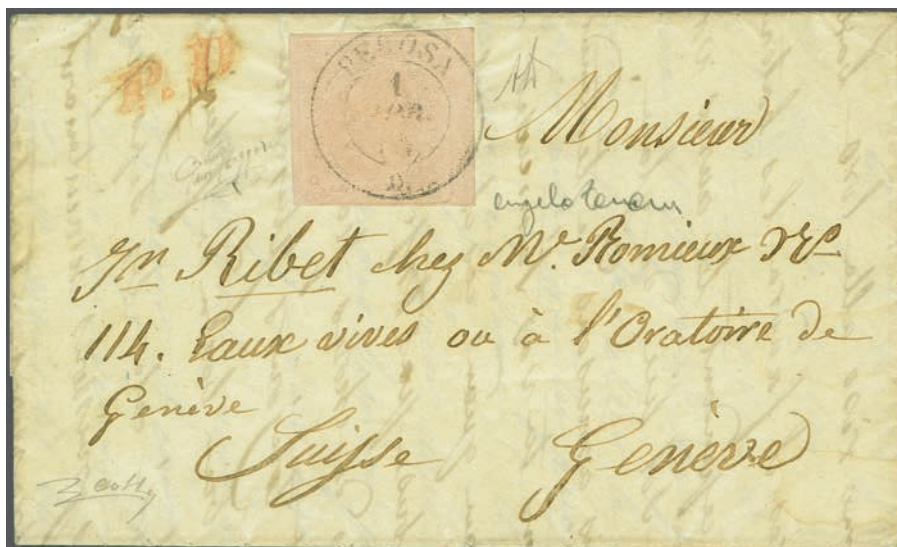 P.D
PEROSA
1
APR.
Monsieur
Jn Ribet chez Mr. Romieux
114. Eaux vives ou à l'Oratoire de
Genève
Suisse Genève